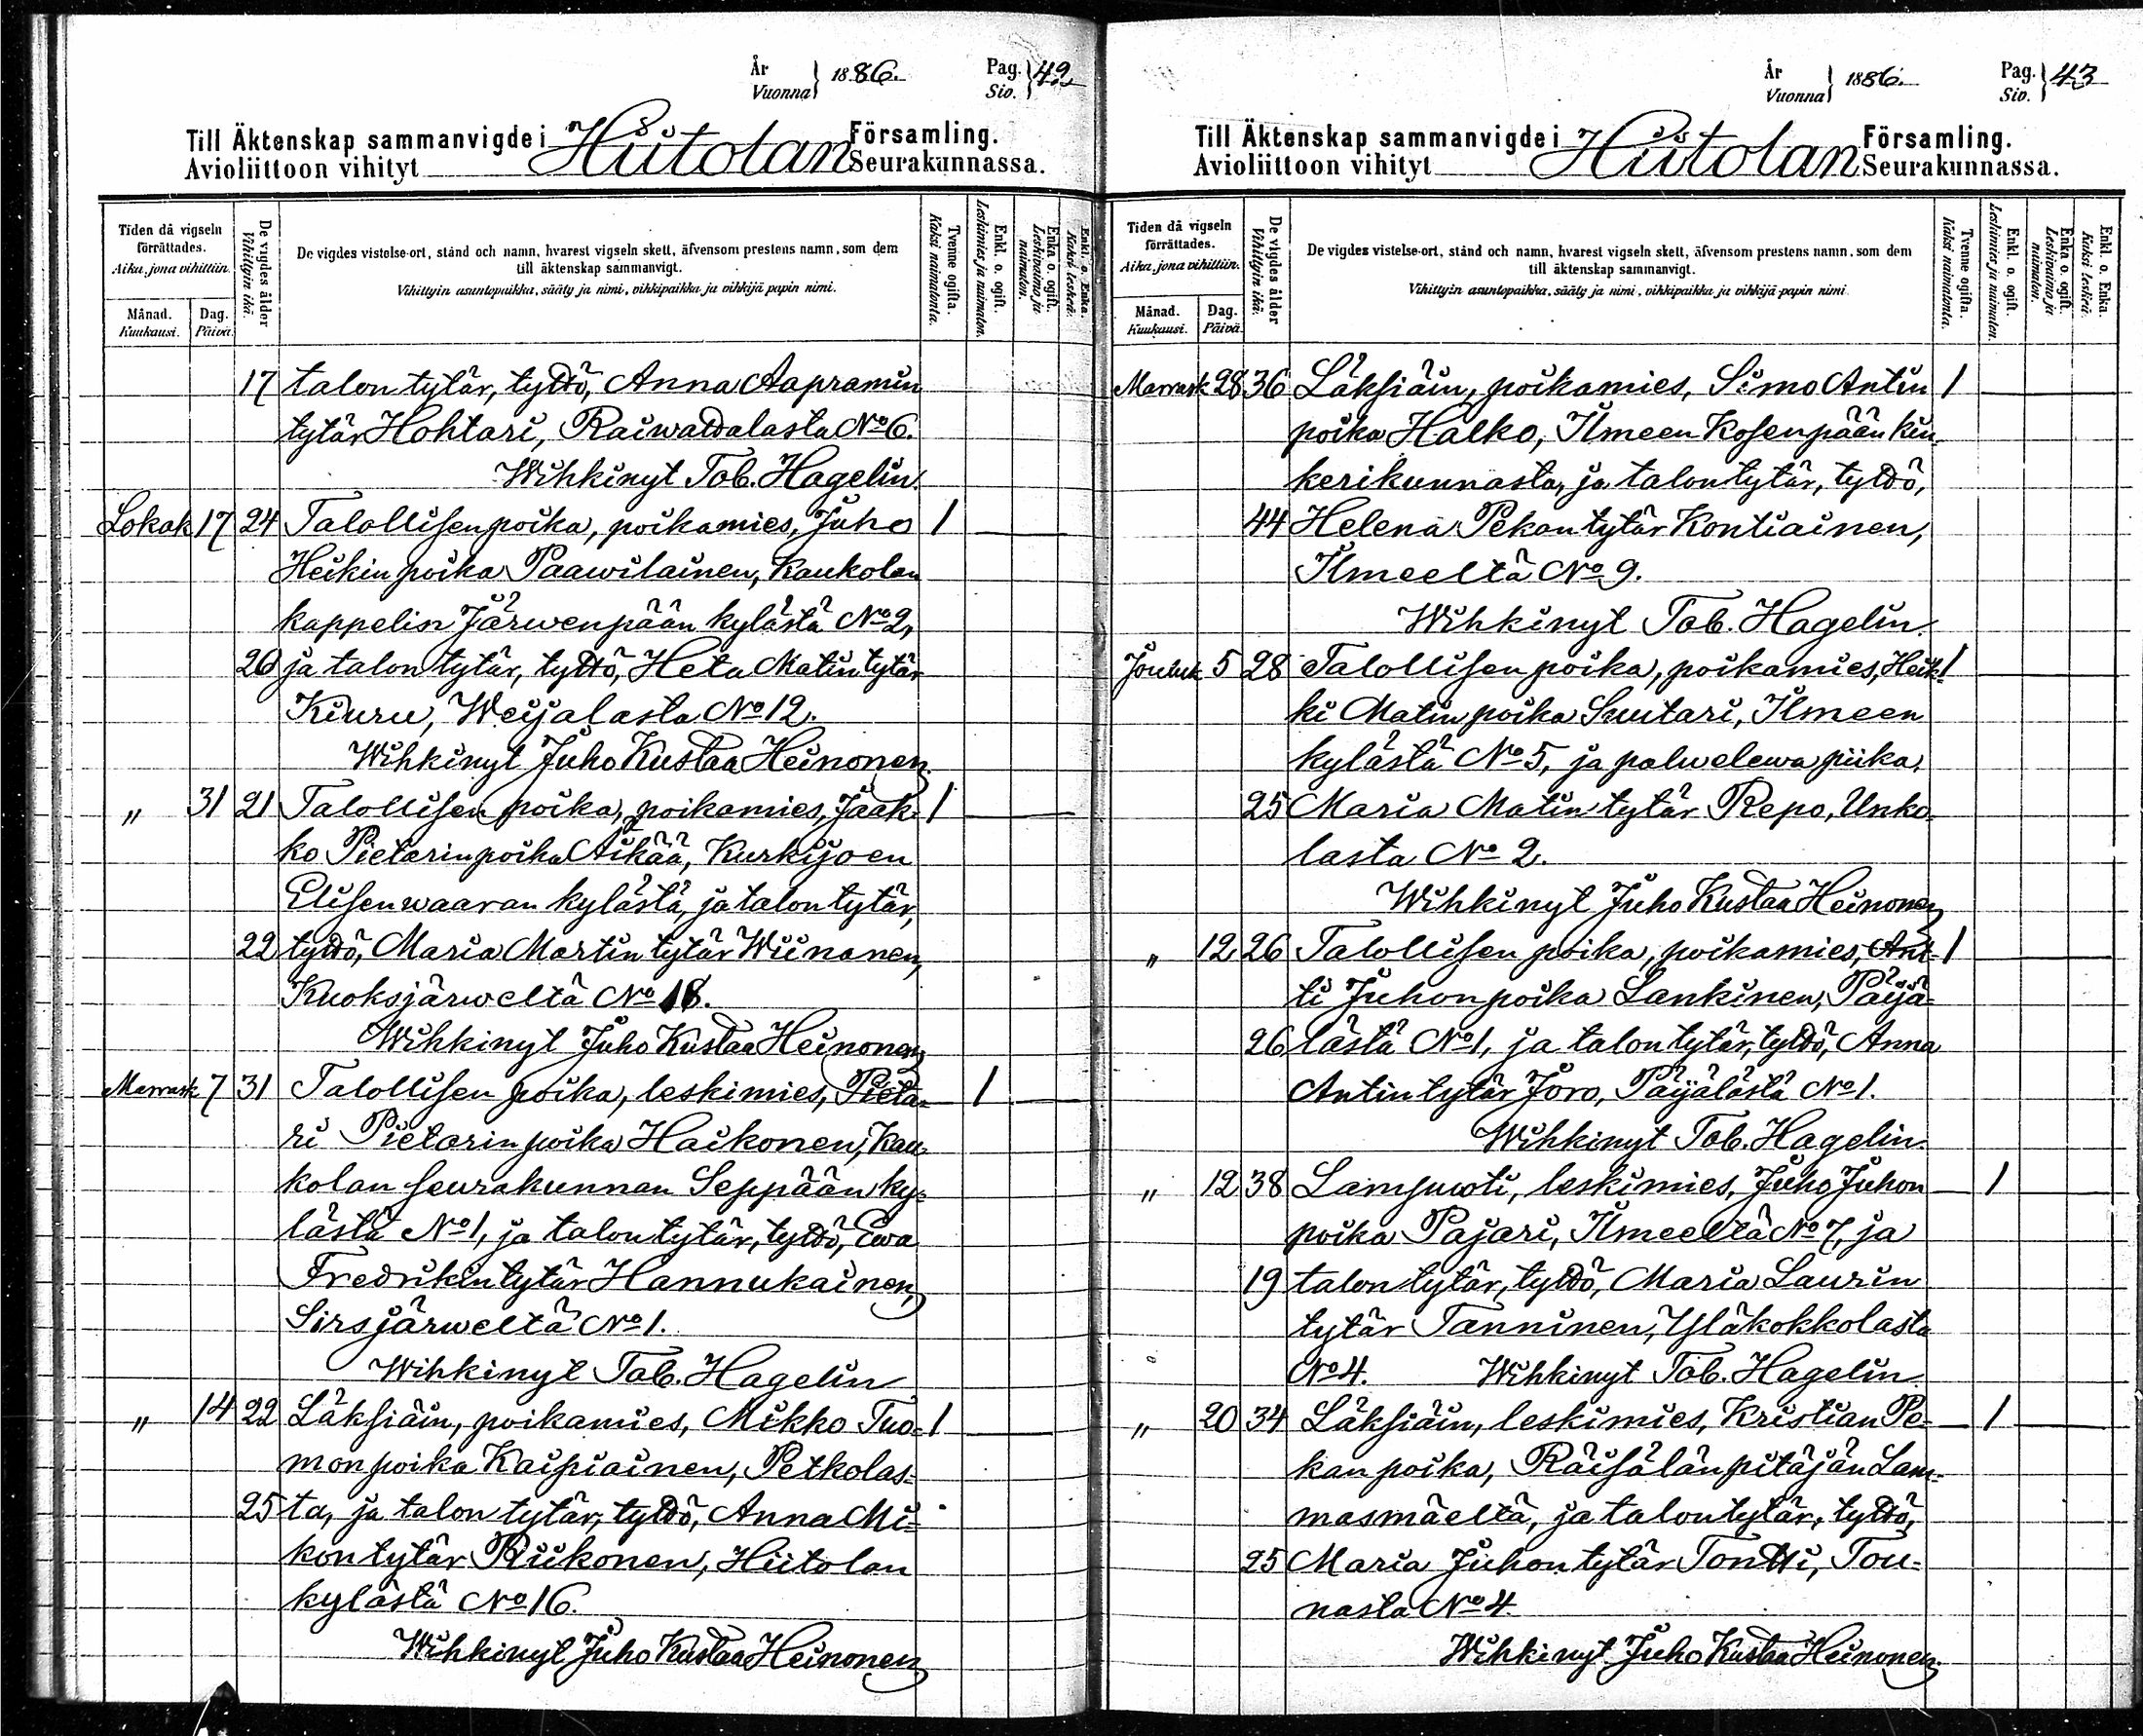 År
Vuonna } 1886.
Pag.
Siv. } 42
Till Äktenskap sammanvigde i Hiitolan Församling.
Avioliittoon vihityt Seurakunnassa.
Tiden då vigseln förrättades.
Aika, jona vihittiin.
Månad.
Kuukausi.
Dag.
Päivä.
De vigdes ålder
Vihittyin ikä.
De vigdes vistelse-ort, stånd och namn, hvarest vigseln skett, äfvensom prestens namn, som dem
till äktenskap sammanvigt.
Vihittyin asuntopaikka, sääty ja nimi, vihkipaikka ja vihkijä papin nimi.
Tvenne ogifta.
Kaksi naimatonta.
Enkl. o. ogift.
Leskimies ja naimaton.
Enka o. ogift.
Leskivaimo ja naimaton.
Enkl. o. Enka.
Kaksi leskeä.
17 talon tytär, tyttö, Anna Aapramin
tytär Hohtari, Raiwattalasta No 6.
Wihkinyt Tob. Hagelin.
Lokak 17 24 Talollisen poika, poikamies, Juho 1
Heikin poika Paawilainen, Kaukolan
kappelin Järwenpään kylästä No 2,
20 ja talon tytär, tyttö, Heta Matin tytär
Kiuru, Weijalasta No 12.
Wihkinyt Juho Kustaa Heinonen.
" 31 21 Talollisen poika, poikamies, Jaak- 1
ko Pietarin poika Äikää, Kurkijoen
Elisenwaaran kylästä, ja talon tytär,
22 tyttö, Maria Martin tytär Wiinanen,
Kuoksjärweltä No 18.
Wihkinyt Juho Kustaa Heinonen
Marrask 7 31 Talollisen poika, leskimies, Pieta- 1
ri Pietarin poika Haikonen, Kau-
kolan seurakunnan Seppään ky-
lästä No 1, ja talon tytär, tyttö, Ewa
Fredrikin tytär Hannukainen,
Sirsjärweltä No 1.
Wihkinyt Tob. Hagelin
" 14 22 Läksiäin, poikamies, Mikko Tuo- 1
mon poika Kaipiainen, Petkolas-
25 ta, ja talon tytär, tyttö, Anna Mi-
kon tytär Riikonen, Hiitolan
kylästä No 16.
Wihkinyt Juho Kustaa Heinonen
År
Vuonna } 1886.
Pag.
Siv. } 43
Till Äktenskap sammanvigde i Hiitolan Församling.
Avioliittoon vihityt Seurakunnassa.
Tiden då vigseln förrättades.
Aika, jona vihittiin.
Månad.
Kuukausi.
Dag.
Päivä.
De vigdes ålder
Vihittyin ikä.
De vigdes vistelse-ort, stånd och namn, hvarest vigseln skett, äfvensom prestens namn, som dem
till äktenskap sammanvigt.
Vihittyin asuntopaikka, sääty ja nimi, vihkipaikka ja vihkijä papin nimi.
Tvenne ogifta.
Kaksi naimatonta.
Enkl. o. ogift.
Leskimies ja naimaton.
Enka o. ogift.
Leskivaimo ja naimaton.
Enkl. o. Enka.
Kaksi leskeä.
Marrask 28 36 Läksiäin, poikamies, Simo Antin 1
poika Halko, Ilmeen Kosenpään kin-
kerikunnasta, ja talon tytär, tyttö,
44 Helena Pekan tytär Kontiainen,
Ilmeeltä No 9.
Wihkinyt Tob. Hagelin.
Jouluk 5 28 Talollisen poika, poikamies, Heik- 1
ki Matin poika Suutari, Ilmeen
kylästä No 5, ja palwelewa piika,
25 Maria Matin tytär Repo, Unko-
lasta No 2.
Wihkinyt Juho Kustaa Heinonen
" 12 26 Talollisen poika, poikamies, Ant- 1
ti Juhon poika Lankinen, Päijä-
26 lästä No 1, ja talon tytär, tyttö, Anna
Antin tytär Joro, Päijälästä No 1.
Wihkinyt Tob. Hagelin.
" 12 38 Lampuoti, leskimies, Juho Juhon 1
poika Pajari, Ilmeeltä No 7, ja
19 talon tytär, tyttö, Maria Laurin
tytär Tanninen, Yläkokkolasta
No 4. Wihkinyt Tob. Hagelin
" 20 34 Läksiäin, leskimies, Kristian Pe- 1
kan poika, Räisälän pitäjän Lam-
masmäeltä, ja talon tytär, tyttö,
25 Maria Juhon tytär Tontti, Tou-
nasta No 4.
Wihkinyt Juho Kustaa Heinonen.